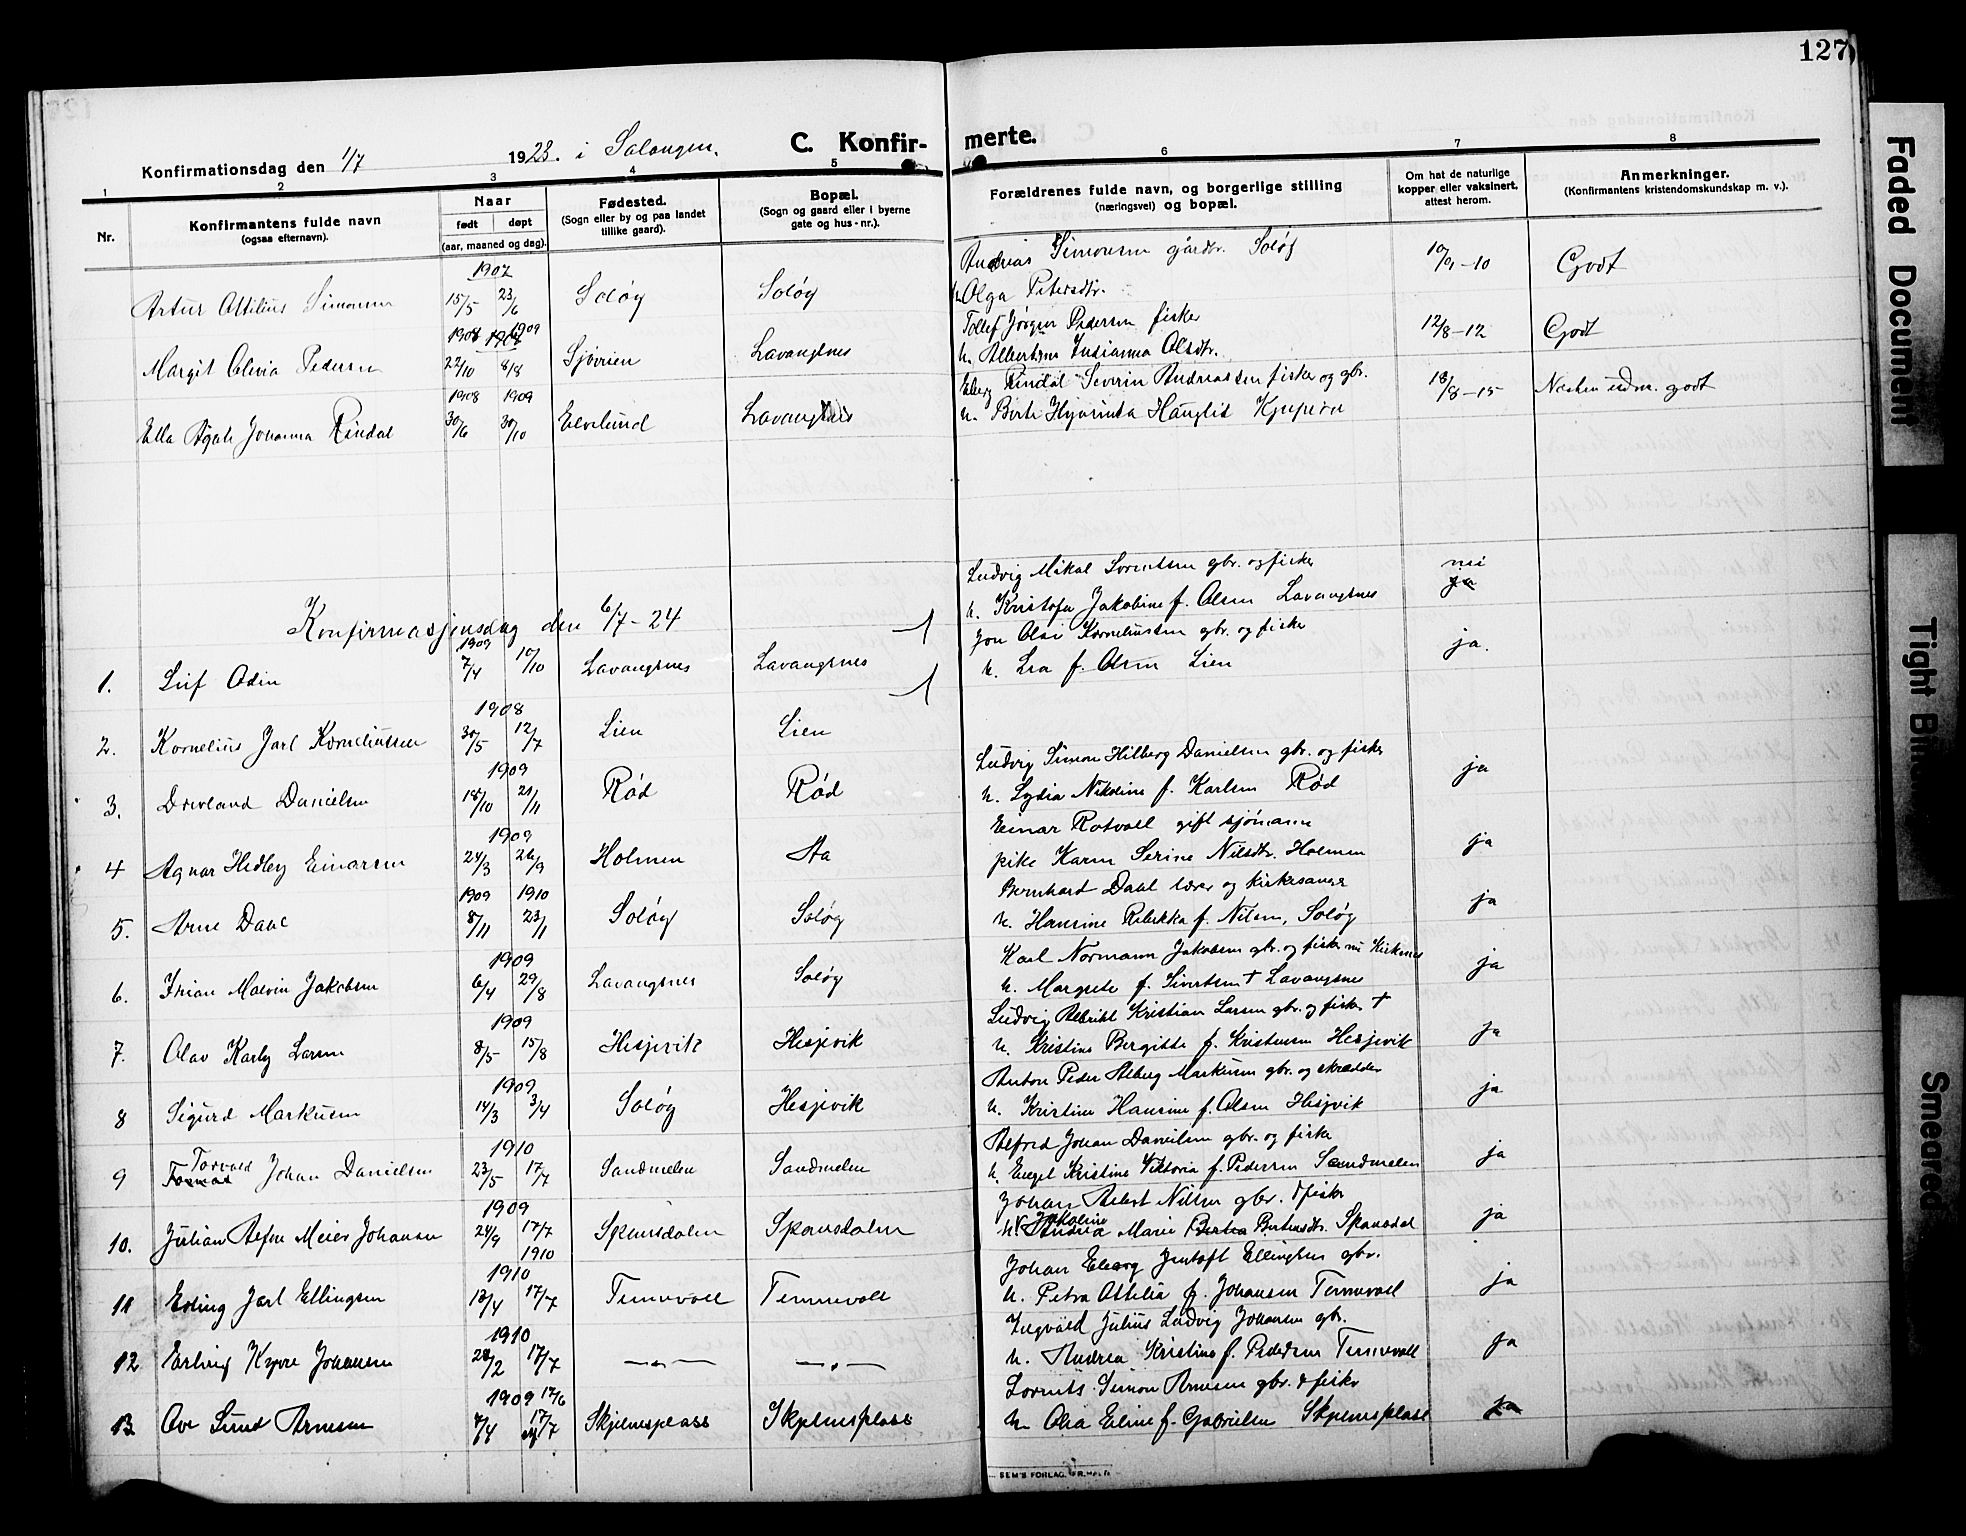 127
C. Konfir- merte.
Konfirmationsdag den 1/7 1923. i Salangen.
1 2 3 4 5 6 7 8
Nr.
Konfirmantens fulde navn
(ogsaa efternavn).
Naar
født døpt
(aar, maaned og dag).
Fødested.
(Sogn eller by og paa landet
tillike gaard).
Bopæl.
(Sogn og gaard eller i byerne
gate og hus-nr.).
Forældrenes fulde navn, og borgerlige stilling
(næringsvei) og bopæl.
Om hat de naturlige
kopper eller vaksinert,
attest herom.
Anmerkninger.
(Konfirmantens kristendomskundskap m. v.).
Andreas Simonsen gårdbr. Soløy
1907
Artur Attilius Simonsen 15/5 23/6 Soløy Soløy h. Olga Petersdtr. 10/9-10 Godt
Tollef Jørgen Pedersen fisker
1908 1907 1909
Margit Olivia Pedersen 22/10 8/8 Sjøvrien Lavangsnes h. Albertine Indianna Olsdtr. 12/8-12 Godt
Elberg Rindal Severin Andreassen fisker og gbr.
1908 1909
Ella Agate Johanna Rindal 30/6 30/10 Elvelund Lavangsnes h. Berte Hjørinta Hauglid 18/8-15 Næsten udm. godt
Konfirmasjonsdag den 6/7-24
Ludvig Mikal Sorentsen gbr. og fisker nei
h. Kristofa Jakobine f. Olsen Lavangsnes ja
1909
1. Leif Odin 7/4 10/10 Lavangsnes Lavangsnes
Jon Olai Korneliussen gbr. og fisker
h. Lea f. Olsen Lien ja.
1908
2. Kornelius Jarl Korneliussen 30/5 12/7 Lien Lien
Ludvig Simon Hilberg Danielsen gbr. og fisker
1909
3. Drevland Danielsen 18/10 21/11 Rød Rød h. Lydia Nikoline f. Karlsen Rød ja
Einar Rotvoll gift sjømann
1909
4 Agnar Hedley Einarsen 24/3 26/9 Holmen Aa pike Karen Serine Nilsdtr. Holmen ja
Bernhard Dahl lærer og kirkesanger
1909 1910
5. Arne Dahl 8/11 23/1 Soløy Soløy h. Hansine Rebekka f. Nilsen, Soløy ja
Karl Normann Jakobsen gbr. og fisker nu Kirkenes
1909
6. Malvin Jakobsen 6/4 29/8 Lavangsnes Soløy h. Margrete f. Sivertsen † Lavangsnes ja
Ludvig Albrikt Kristian Larsen gbr. og fisker †
1909
7. Olav Karly Larsen 8/5 15/8 Hesjevik Hesjevik h. Kristine Bergitte f. Kristensen Hesjevik ja
Anton Peder Alberg Markusen gbr. og skrædder
1909
8 Sigurd Markusen 14/3 3/4 Soløy Hesjevik h. Kristine Hansine f. Olsen Hesjevik ja
Alfred Johan Danielsen gbr. og fisker
1910
Torvald
9 Johan Danielsen 23/5 17/7 Sandmelen Sandmelen h. Engel Kristine Viktoria f. Pedersen Sandmelen ja
Johan Albert Nilsen gbr. & fisker
1909
Jakobine
10. Julian Alfon Meier Johansen 24/9 17/7 Spansdalen Spansdalen h. Andrea Marie Berntea Berntsdtr. Spansdal ja
1910
Johan Elberg Jentoft Ellingsen gbr.
1910
11 Erling Jarl Ellingsen 13/4 17/7 Tennevoll Tennevoll h. Petra Attilia f. Johansen Tennevoll ja
Ingvald Julius Ludvig Johansen gbr.
1910
12 Erling Kyrre Johansen 28/2 17/7 —„— —„— h. Andrea Kristine f. Pedersen Tennevoll ja
Lorents Simon Arnesen gbr. & fisker
1909 17/6
13 Ove Sund Arnesen 7/4 17/7 Skjelnesplass Skjelnesplass h. Olia Eline f. Gabrielsen Skjelnesplass ja
SEM'S FORLAG, FR.HALD
Faded Document
Tight Bin
Smeared